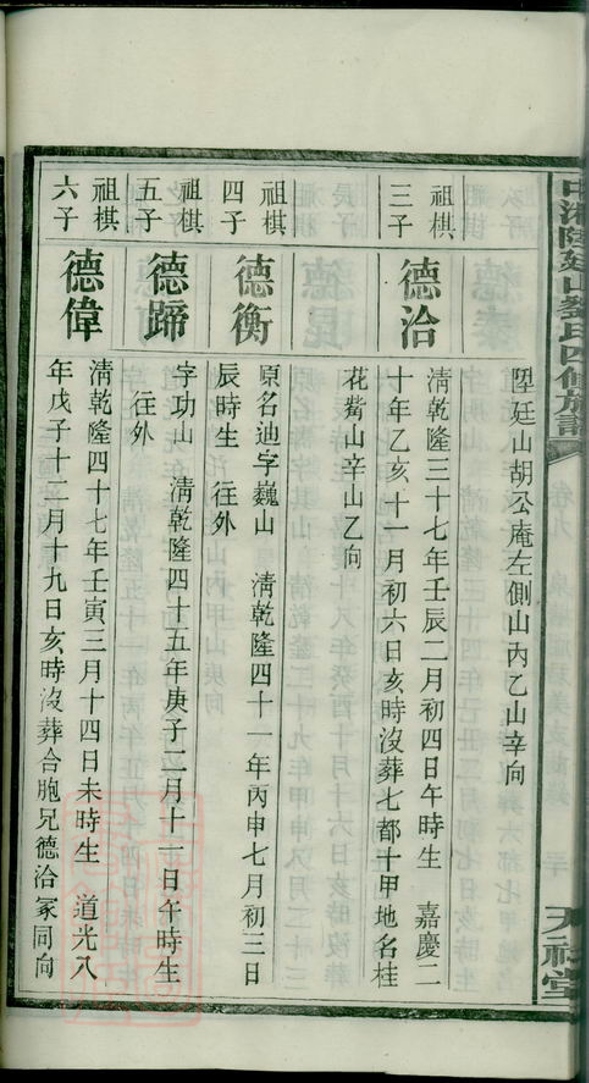 陞廷山胡公庵左側山內乙山辛向
祖棋
三子
德洽
清乾隆三十七年壬辰二月初四日午時生　嘉慶二
十年乙亥十一月初六日亥時沒葬七都十甲地名桂
花觜山辛山乙向
祖棋
四子
德衡
原名迪字巍山　清乾隆四十一年丙申七月初三日
辰時生　往外
祖棋
五子
德蹄
字功山　清乾隆四十五年庚子二月十一日午時生
往外
祖棋
六子
德偉
清乾隆四十七年壬寅三月十四日未時生　道光八
年戊子十二月十九日亥時沒葬合胞兄德洽冢同向